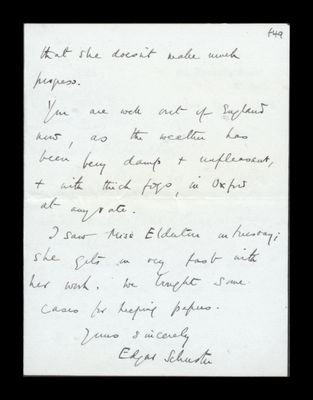 f49
that she doesn't make much
progress.
You are well out of England
now, as the weather has
been very damp + unpleasant,
+ with thick fogs, in Oxford
at any rate.
I saw Miss Elderton on tuesday;
she gets on very fast with
her work. We bought some
cases for keeping papers.
Yours sincerely
Edgar Schuster